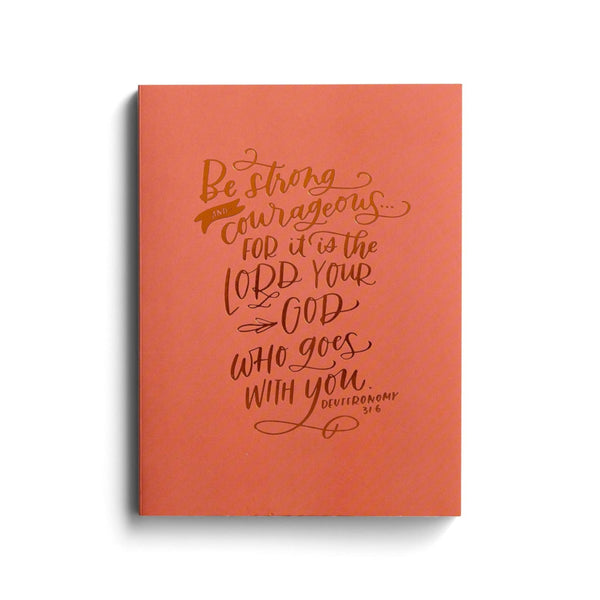 Be strong
AND courageous...
FOR it is the
LORD YOUR
GOD
WHO goes
WITH you.
DEUTERONOMY
31:6